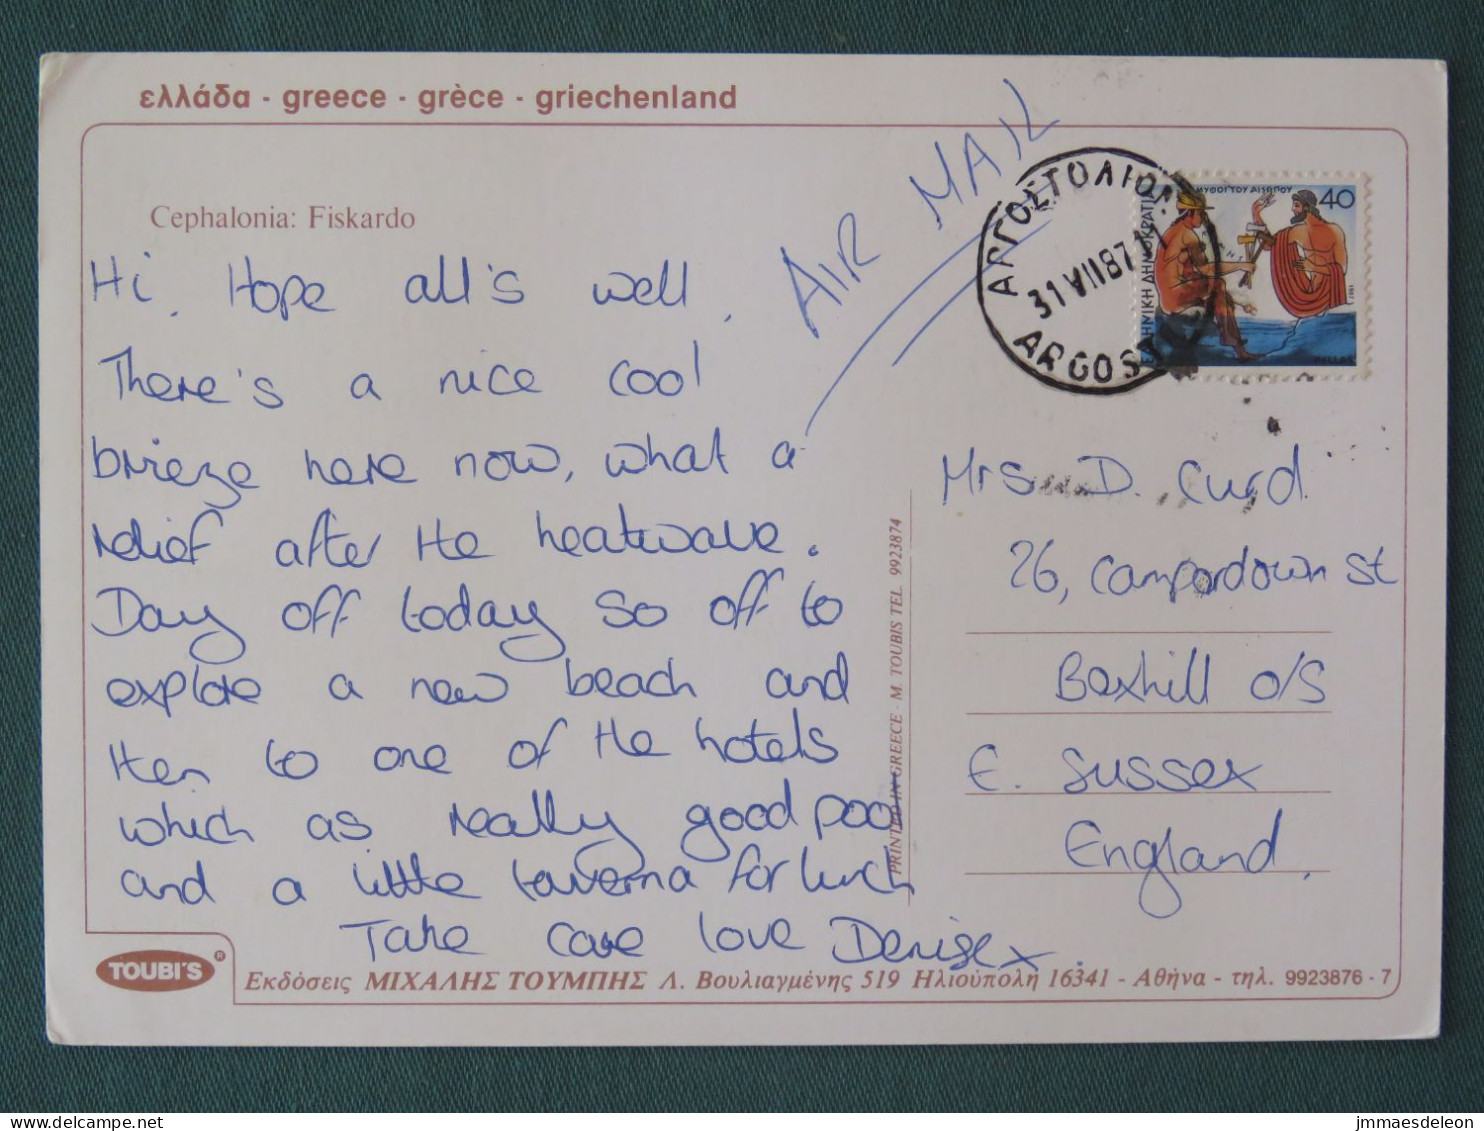 ελλάδα - greece - grèce - griechenland
Cephalonia: Fiskardo
Hi. Hope all's well.
There's a nice cool
breeze here now, what a
relief after the heatwave.
Day off today so off to
explore a new beach and
then to one of the hotels
which as really good pool
and a little taverna for lunch
Take care love Denise x
AIR MAIL
ΑΡΓΟΣΤΟΛΙΟΝ
31 VII 87
ARGOSTOLI
ΜΥΘΟΙ ΤΟΥ ΑΙΣΩΠΟΥ
40
ΕΛΛΗΝΙΚΗ ΔΗΜΟΚΡΑΤΙΑ
HELLAS
1987
Mrs D. Curd.
26, Camperdown St
Bexhill o/S
E. Sussex
England.
PRINTED IN GREECE - M. TOUBIS TEL 9923874
TOUBI'S ®
Εκδόσεις ΜΙΧΑΛΗΣ ΤΟΥΜΠΗΣ Λ. Βουλιαγμένης 519 Ηλιούπολη 16341 - Αθήνα - τηλ. 9923876 - 7
jmmaesdeleon